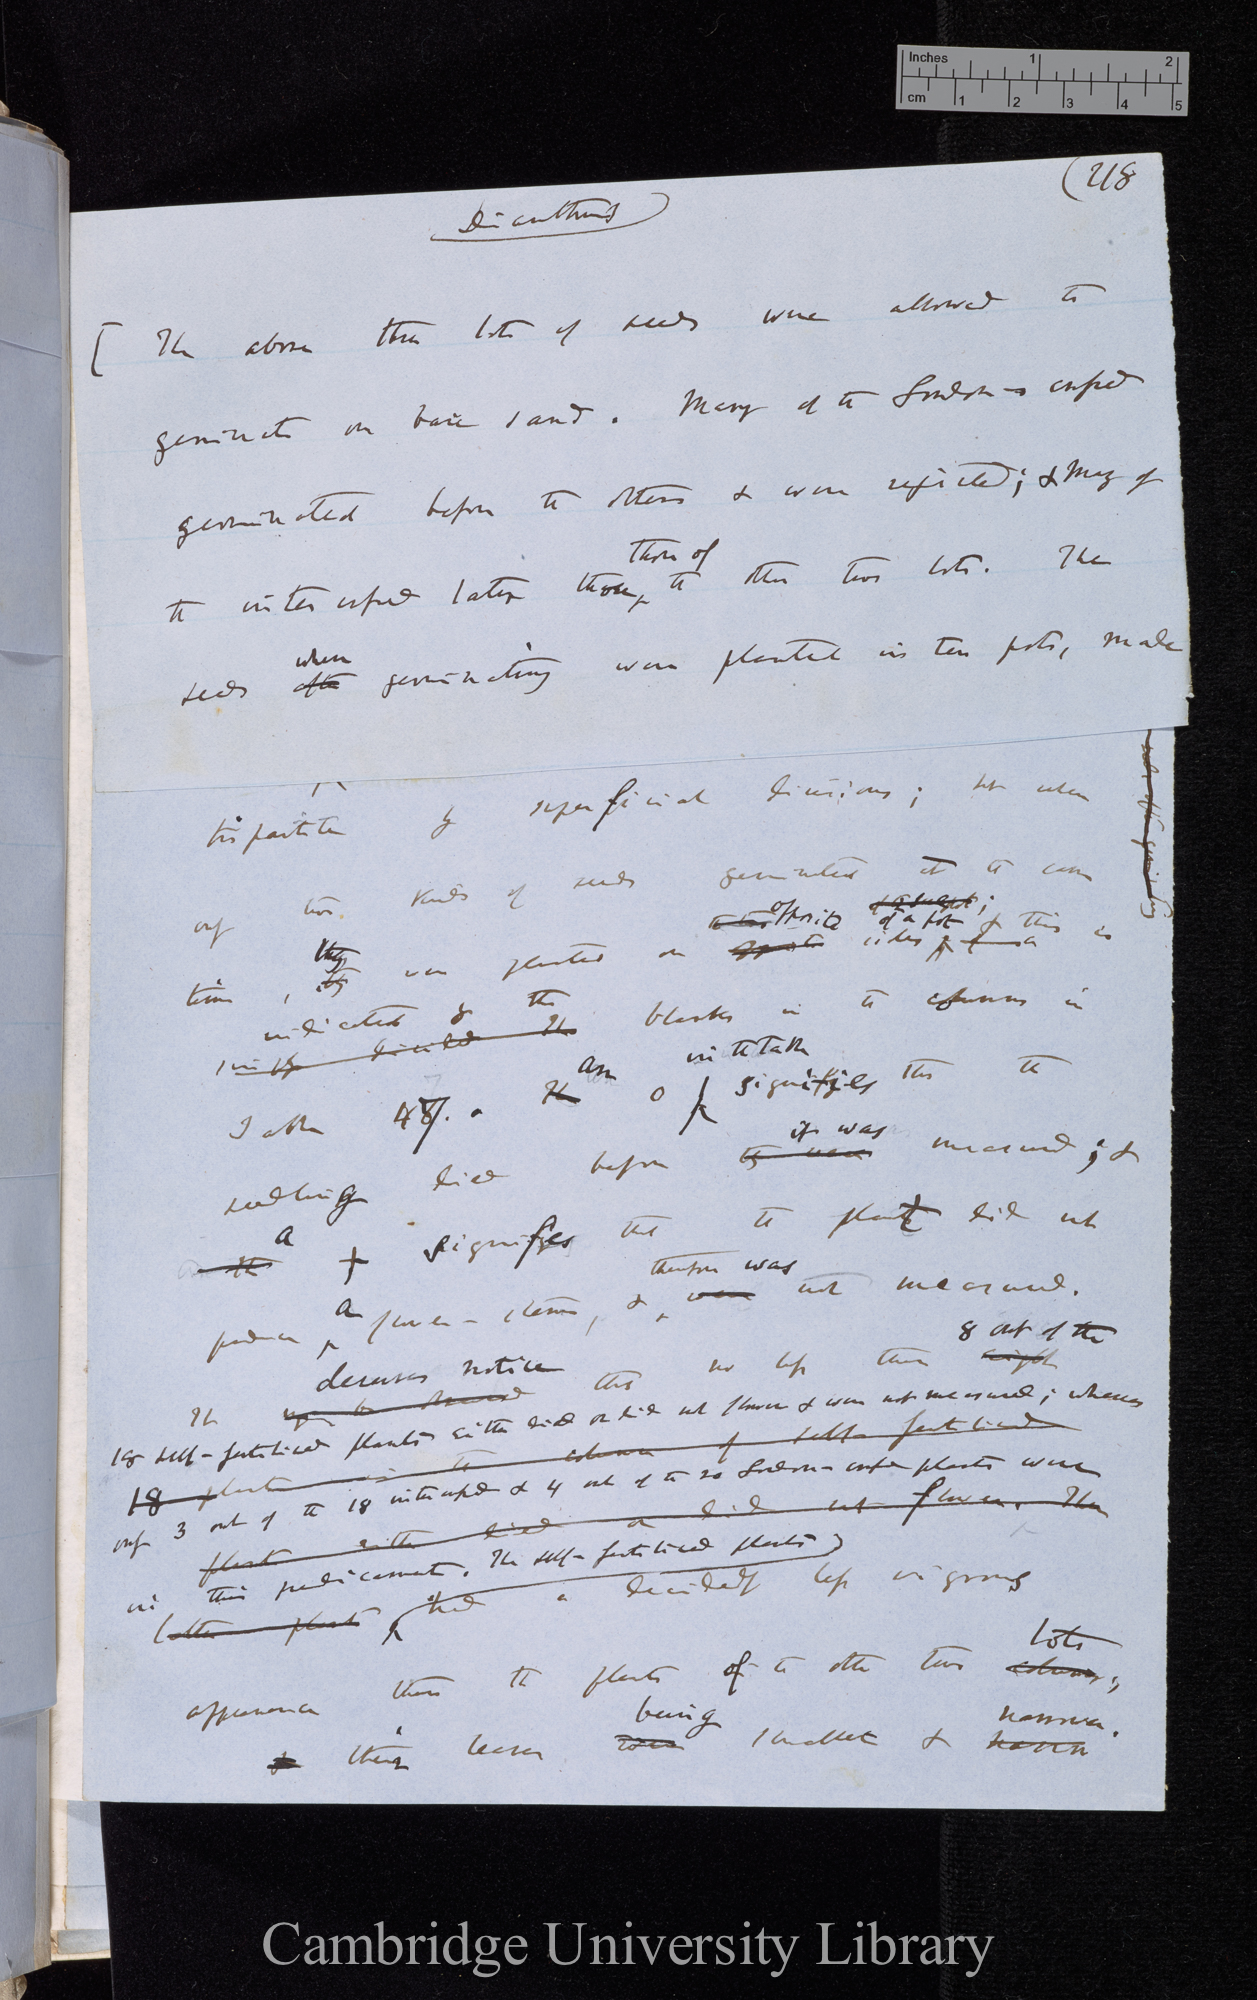 Inches 1 2
cm 1 2 3 4 5
(218
Dianthus
[ The above three lots of seeds were allowed to
germinate on bare sand. Many of the London-crossed
germinated before the others & were rejected; & many of
those of
the intercrossed later than the other two lots. The
when
seeds after germinating were planted in ten pots, made
tripartite by superficial divisions; but when
only two kinds of seeds germinated at the same
opposite of a pot
time, they were planted on opposite sides; & this is
indicated by the
simply divided The blanks in the columns in
An in the table
Table 47. The 0 signifies that the
it was
seedling died before they were measured; &
a
the + signifies that the plant did not
a therefore was
produce flower-stems, & were not measured.
deserves notice 8 out of the
It may be observed that no less than eight
18 self-fertilised plants either died or did not flower & were not measured; whereas
18 plants in the column of self-fertilised
only 3 out of the 18 intercrossed & 4 out of the 20 London-crossed plants were
plants either died or did not flower. The
in this predicament. The self-fertilised plants
latter plants had a decidedly less vigorous
lots
appearance than the plants of the other two columns;
being narrower.
& their leaves were smaller & narrow
Cambridge University Library